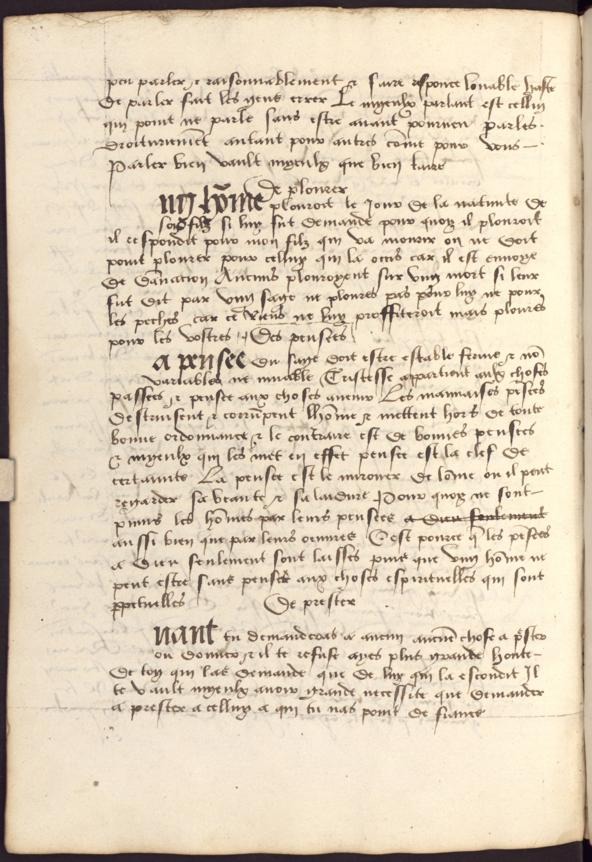 peu parler & raisonnablement & faire response louable haste
de parler fait les gens errer Le myeulx parlant est celluy
qui point ne parle sans estre auant pourueu parles
droicturiemēt autant pour autres cōme pour vous
Parler bien vault myeulx que bien taire
De plourer
ung hōme plouroit le Jour de la natiuite de
son filz si luy fut demande pour quoy il plouroit
il respondit pour mon filz qui va mourir on ne doit
point plourer pour celluy qui la occis car il est en voye
de dānation Aucuns plouroyent sur vung mort si leur
fut dit par vung saige ne ploures pas pour luy ne pour
les peches car ce Riens ne luy proffiteroit mais ploures
pour les vostres Des pensees
a pensee du saige doit estre estable ferme & nō
variables ne muable Tristesse appartient aux choses
passees & pensee aux choses auenir Les mauuaises pēsees
destruisent & corrūpent lhōme & mettent hors de toute
bonne ordonnance & le contraire est de bonnes pensees
& myeulx qui les met en effet pensee est la clef de
certainete La pensee est le mirouer de lōme ou il peut
regarder sa beaute & sa laidure Pour quoy ne sont
punis les hōmes par leurs pensees a dieu seulement
aussi bien que par leurs oeuures Cest pource q̄ les pēsees
a dieu seulement sont laissees puis que vung hōme ne
peut estre sans penser aux choses espirituelles qui sont
ꝑpetuelles De prester
uant tu demanderas a aucun aucune chose a p̄ster
ou donner & il te refuse ayes plus grande honte
de toy qui las demande que de luy qui la escondit Il
te vault myeulx auoir grande necessite que demander
a prester a celluy a qui tu nas point de fiance